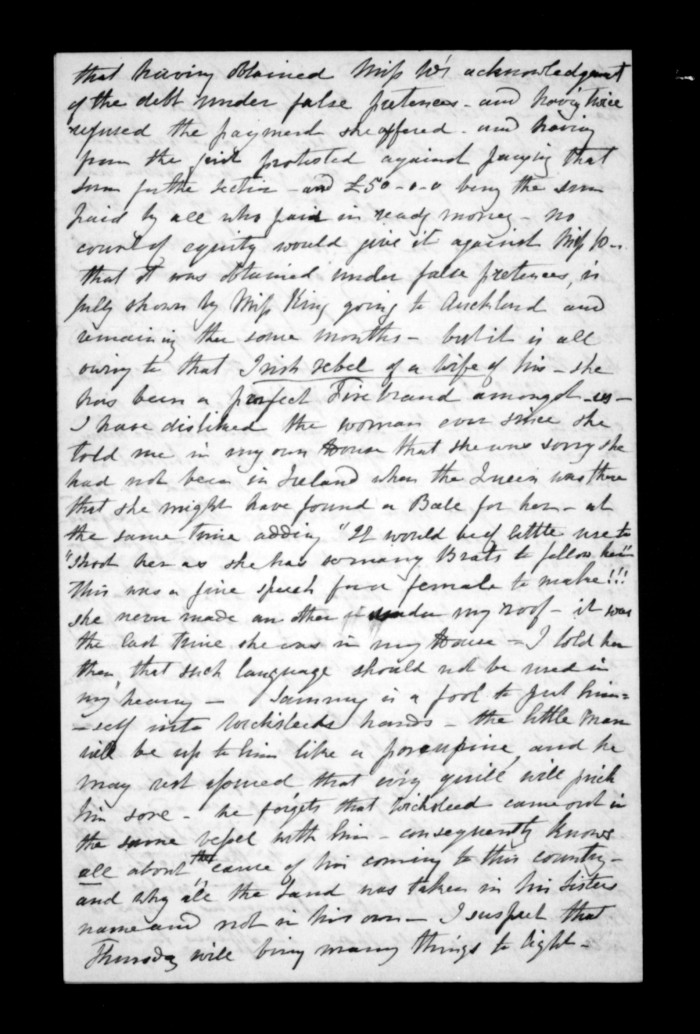 that having obtained Miss W's acknowledgment
of the debt under false pretences - and having twice
refused the payment she offered - and having
from the first protested against paying that
sum for the section - and £50-0-0 being the sum
paid by all who paid in ready money - no
court of equity would give it against Miss
that it was obtained under false pretences, is
fully shown by Miss King going to Auckland and
remaining there some months - but it is all
owing to that Irish rebel of a wife of his - she
has been a perfect Fire brand amongst us -
I have disliked the woman ever since she
told me in my own House that she was sorry she
had not been in Ireland when the Queen was there
that she might have found a Ball for her - at
the same time adding "It would be of little use to
"shoot her as she has so many Brats to follow her"
This was a fine speech for a female to make!!!
she never made an other under my roof - it was
the last time she was in my House - I told her
then, that such language should not be used in
my hearing - Sammy is a fool to put him=
-self into Wicksteeds hands - the little man
will be up to him like a porcupine, and he
may rest assured that every quill will prick
him sore - he forgets that Wicksteed came out in
the same vessel with him - consequently knows
all about the cause of his coming to this country -
and why all the Land was taken in his Sisters
name and not in his own - I suspect that
Thursday will bring many things to light -